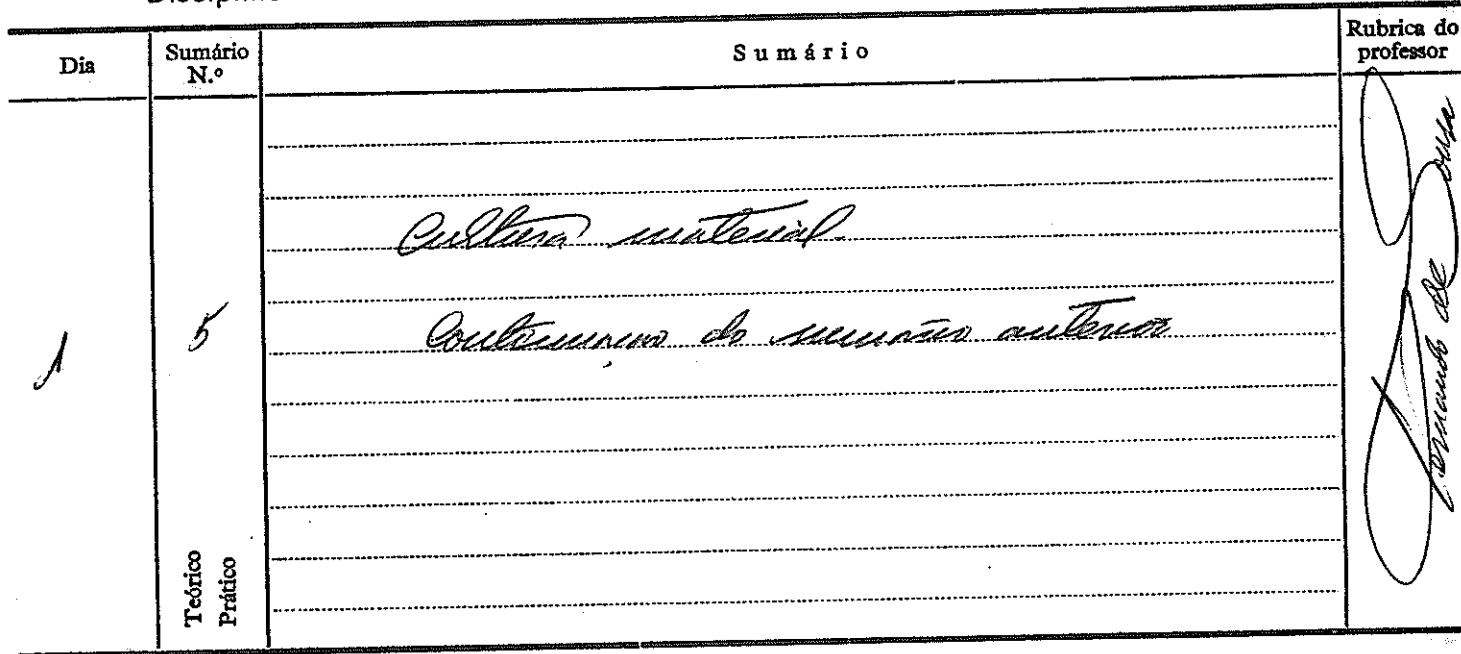 Dia
Sumário N.º
Sumário
Rubrica do professor
1
5
Teórico
Prático
Cultura material
Continuação do sumário anterior
Fernando de Sousa